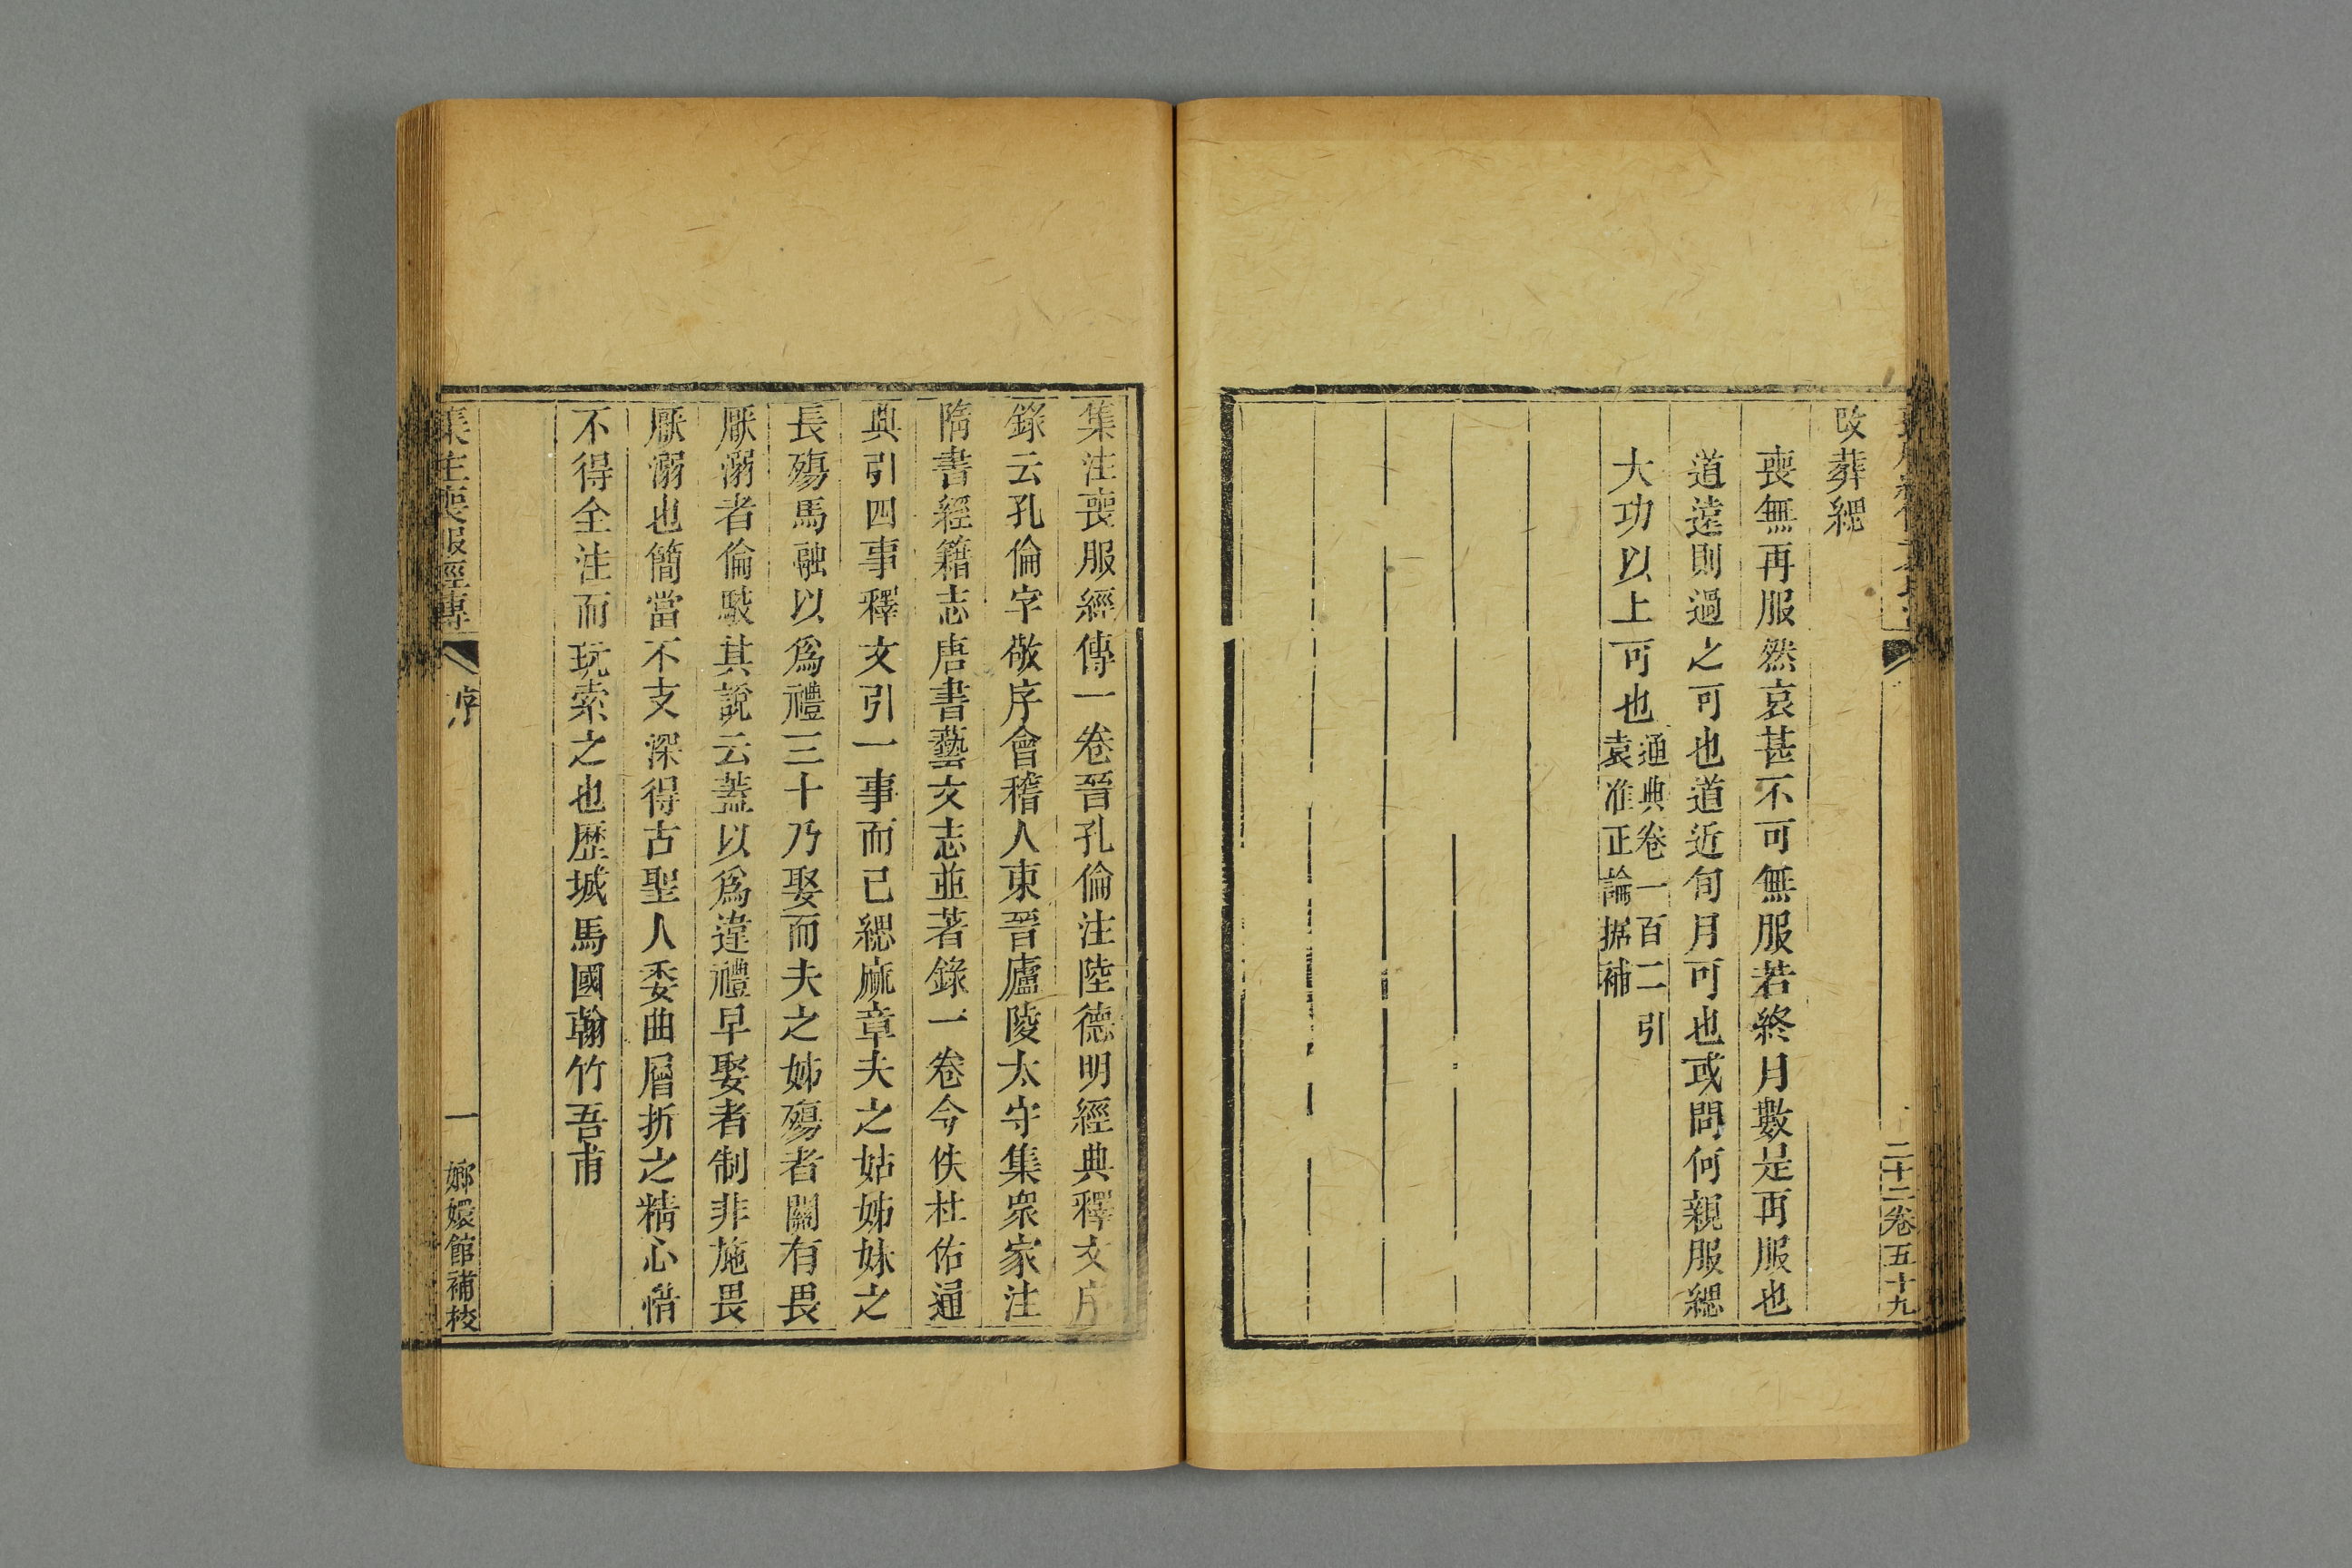 改葬緦
喪無再服然哀甚不可無服若終月數是再服也
道遠則過之可也道近旬月可也或問何親服緦
大功以上可也通典卷一百二引
袁准正論據補
二十二卷五十九
集注喪服經傳一卷晉孔倫注陸德明經典釋文序
錄云孔倫字敬序會稽人東晉廬陵太守集衆家注
隋書經籍志唐書藝文志並著錄一卷今佚杜佑通
典引四事釋文引一事而已緦麻章夫之姑姊妹之
長殤馬融以爲禮三十乃娶而夫之姊殤者關有畏
厭溺者倫駮其說云蓋以爲違禮早娶者制非施畏
厭溺也簡當不支深得古聖人委曲層折之精心惜
不得全注而玩索之也歷城馬國翰竹吾甫
集注喪服經傳
序
一
嫏嬛館補校